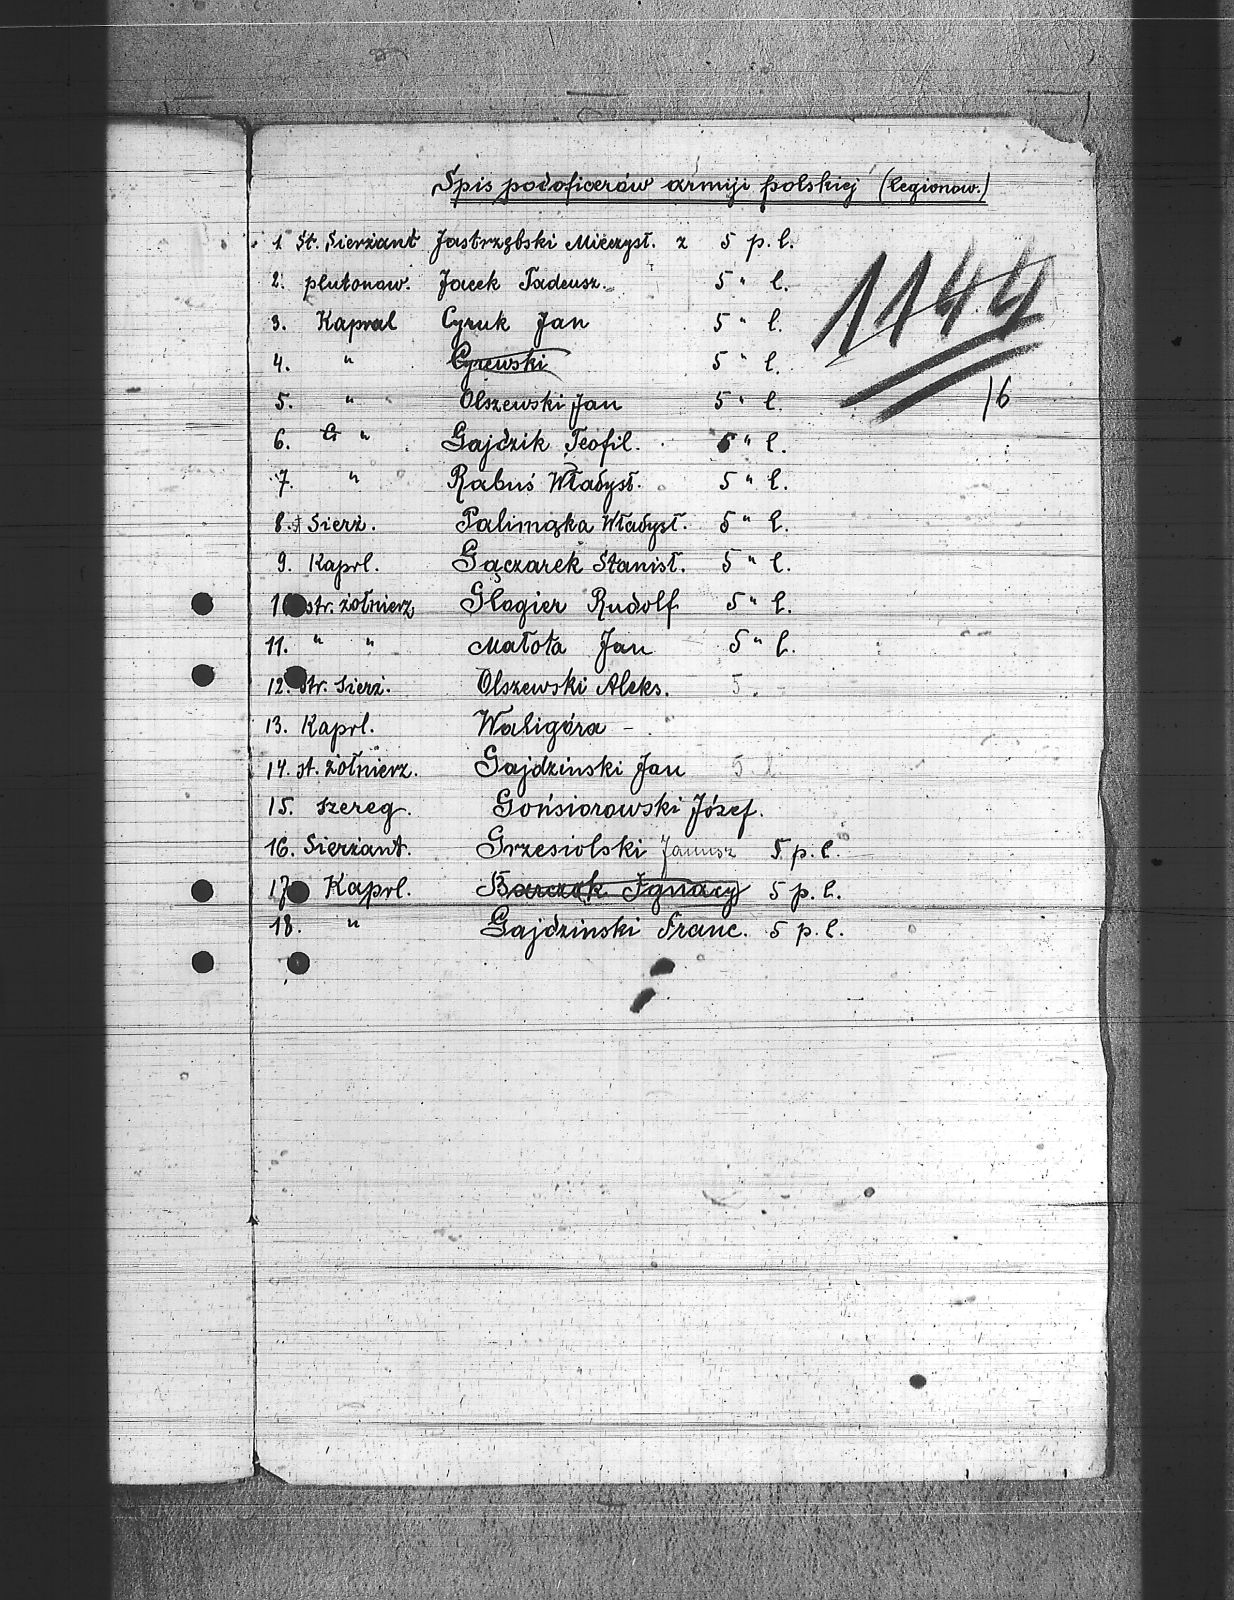 Spis podoficerów armiji polskiej (legionow.)
1 St. Sierżant Jastrzębski Mieczysł. z 5 p. l.
2. plutonow. Jacek Tadeusz. 5 " l.
3. Kapral Cyruk Jan 5 " l.
1144
4. " Cyrewski 5 " l.
5. " Olszewski Jan 5 " l.
16
6. " Gajdzik Teofil. 5 " l.
7. " Rabuś Władysł. 5 " l.
8. Sierż. Palimąka Władysł. 5 " l.
9. Kaprl. Gączarek Stanisł. 5 " l.
10 str. żołnierz Glagier Rudolf 5 " l.
11. " " Małota Jan 5 " l.
12. str. Sierż. Olszewski Aleks. 5.
13. Kaprl. Waligóra -
14. st. żołnierz. Gajdzinski Jan 5. l
15. szereg. Gońsiorowski Józef.
16. Sierżant. Grzesiolski Janusz 5 p. l.
17 Kaprl. Barczak Ignacy 5 p. l.
18. " Gajdzinski Franc. 5 p. l.